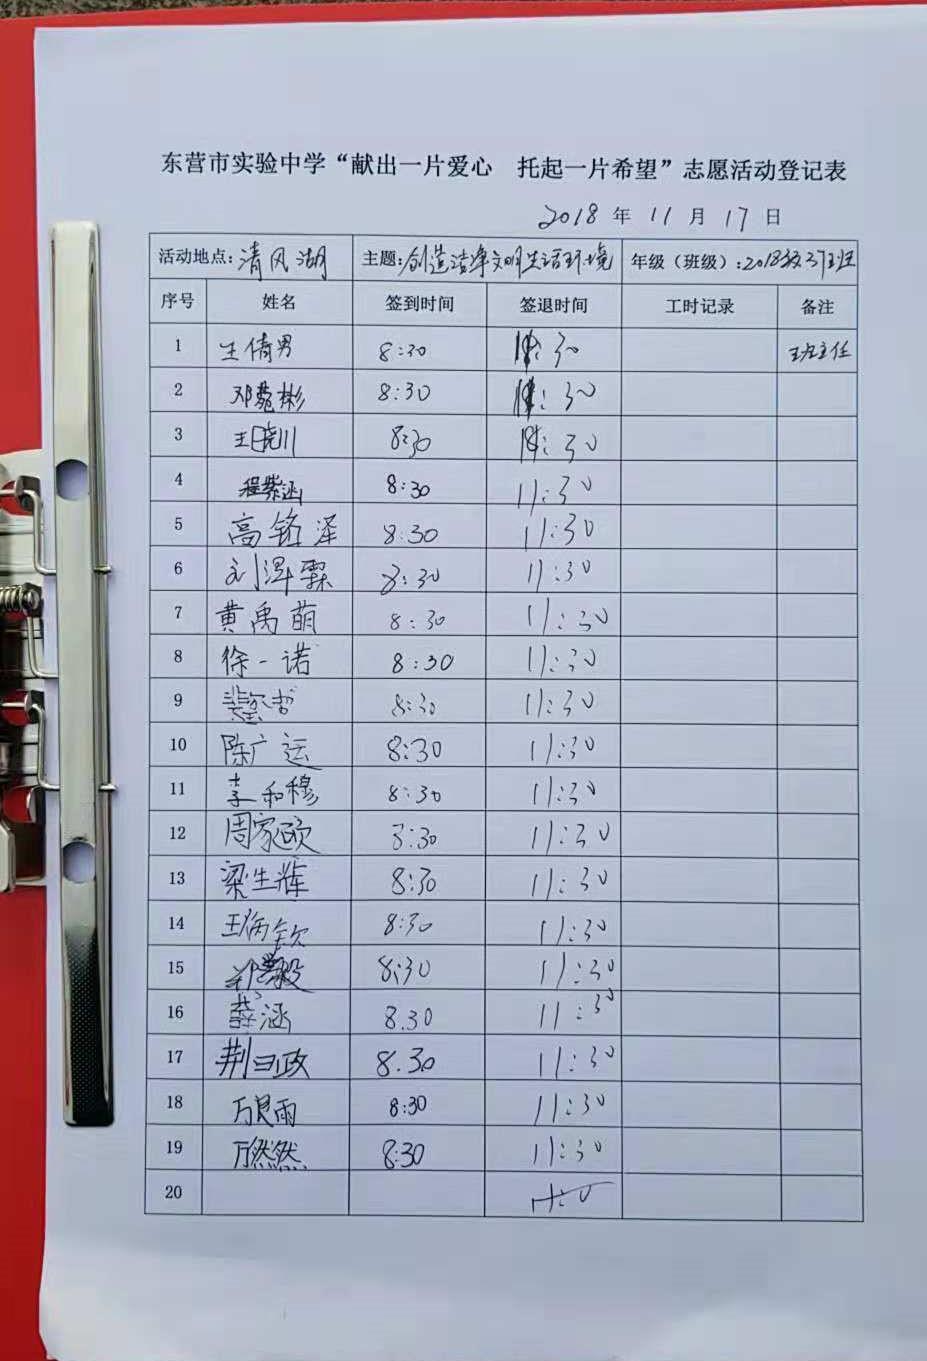 东营市实验中学“献出一片爱心 托起一片希望”志愿活动登记表
2018 年 11 月 17 日
活动地点：清风湖 主题：创造洁净文明生活环境 年级（班级）：2018级37班
序号 姓名 签到时间 签退时间 工时记录 备注
1 王倩男 8:30 11:30 班主任
2 邓 彬 8:30 11:30
3 王晓川 8:30 11:30
4 程紫涵 8:30 11:30
5 高铭泽 8:30 11:30
6 刘泽霖 8:30 11:30
7 黄禹萌 8:30 11:30
8 徐一诺 8:30 11:30
9 8:30 11:30
10 陈广运 8:30 11:30
11 李和穆 8:30 11:30
12 周家硕 8:30 11:30
13 梁生辉 8:30 11:30
14 王炳钦 8:30 11:30
15 8:30 11:30
16 薛涵 8.30 11:30
17 荆曰政 8.30 11:30
18 万良雨 8:30 11:30
19 万然然 8:30 11:30
20